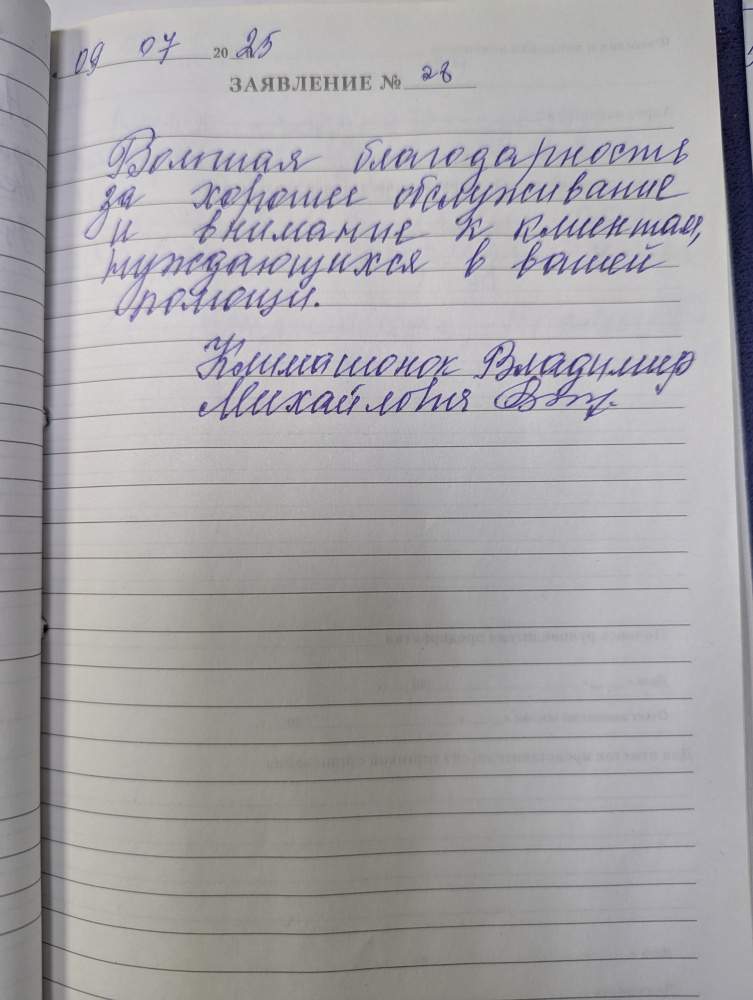 09 07 2025
ЗАЯВЛЕНИЕ № 28
Большая благодарность
за хорошее обслуживание
и внимание к клиентам,
нуждающихся в вашей
помощи.
Климашонок Владимир
Михайлович